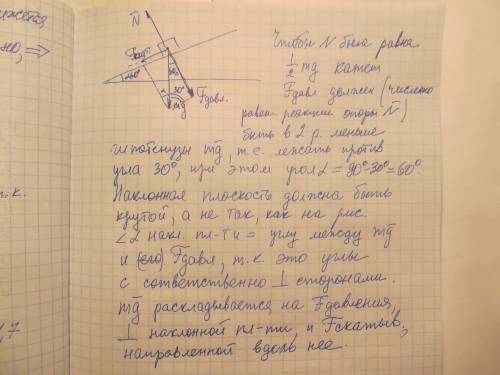 жется,
но, ⇒
N
Fскат.
α=60°
60°
30°
α
mg
Fдавл.
Чтобы N была равна
1/2 mg катет
Fдавл должен (численно
равен реакции опоры N)
быть в 2 р. меньше
гипотенузы mg, т.е. лежать против
угла 30°, при этом угол α = 90°-30°=60°.
Наклонная плоскость должна быть
крутой, а не так, как на рис.
∠α накл. пл-ти = углу между mg
и Fдавл, т.к. это углы
с соответственно ⊥ сторонами.
mg раскладывается на Fдавления,
⊥ наклонной пл-ти, и Fскатыв,
направленной вдоль нее.
т.к.
1,7